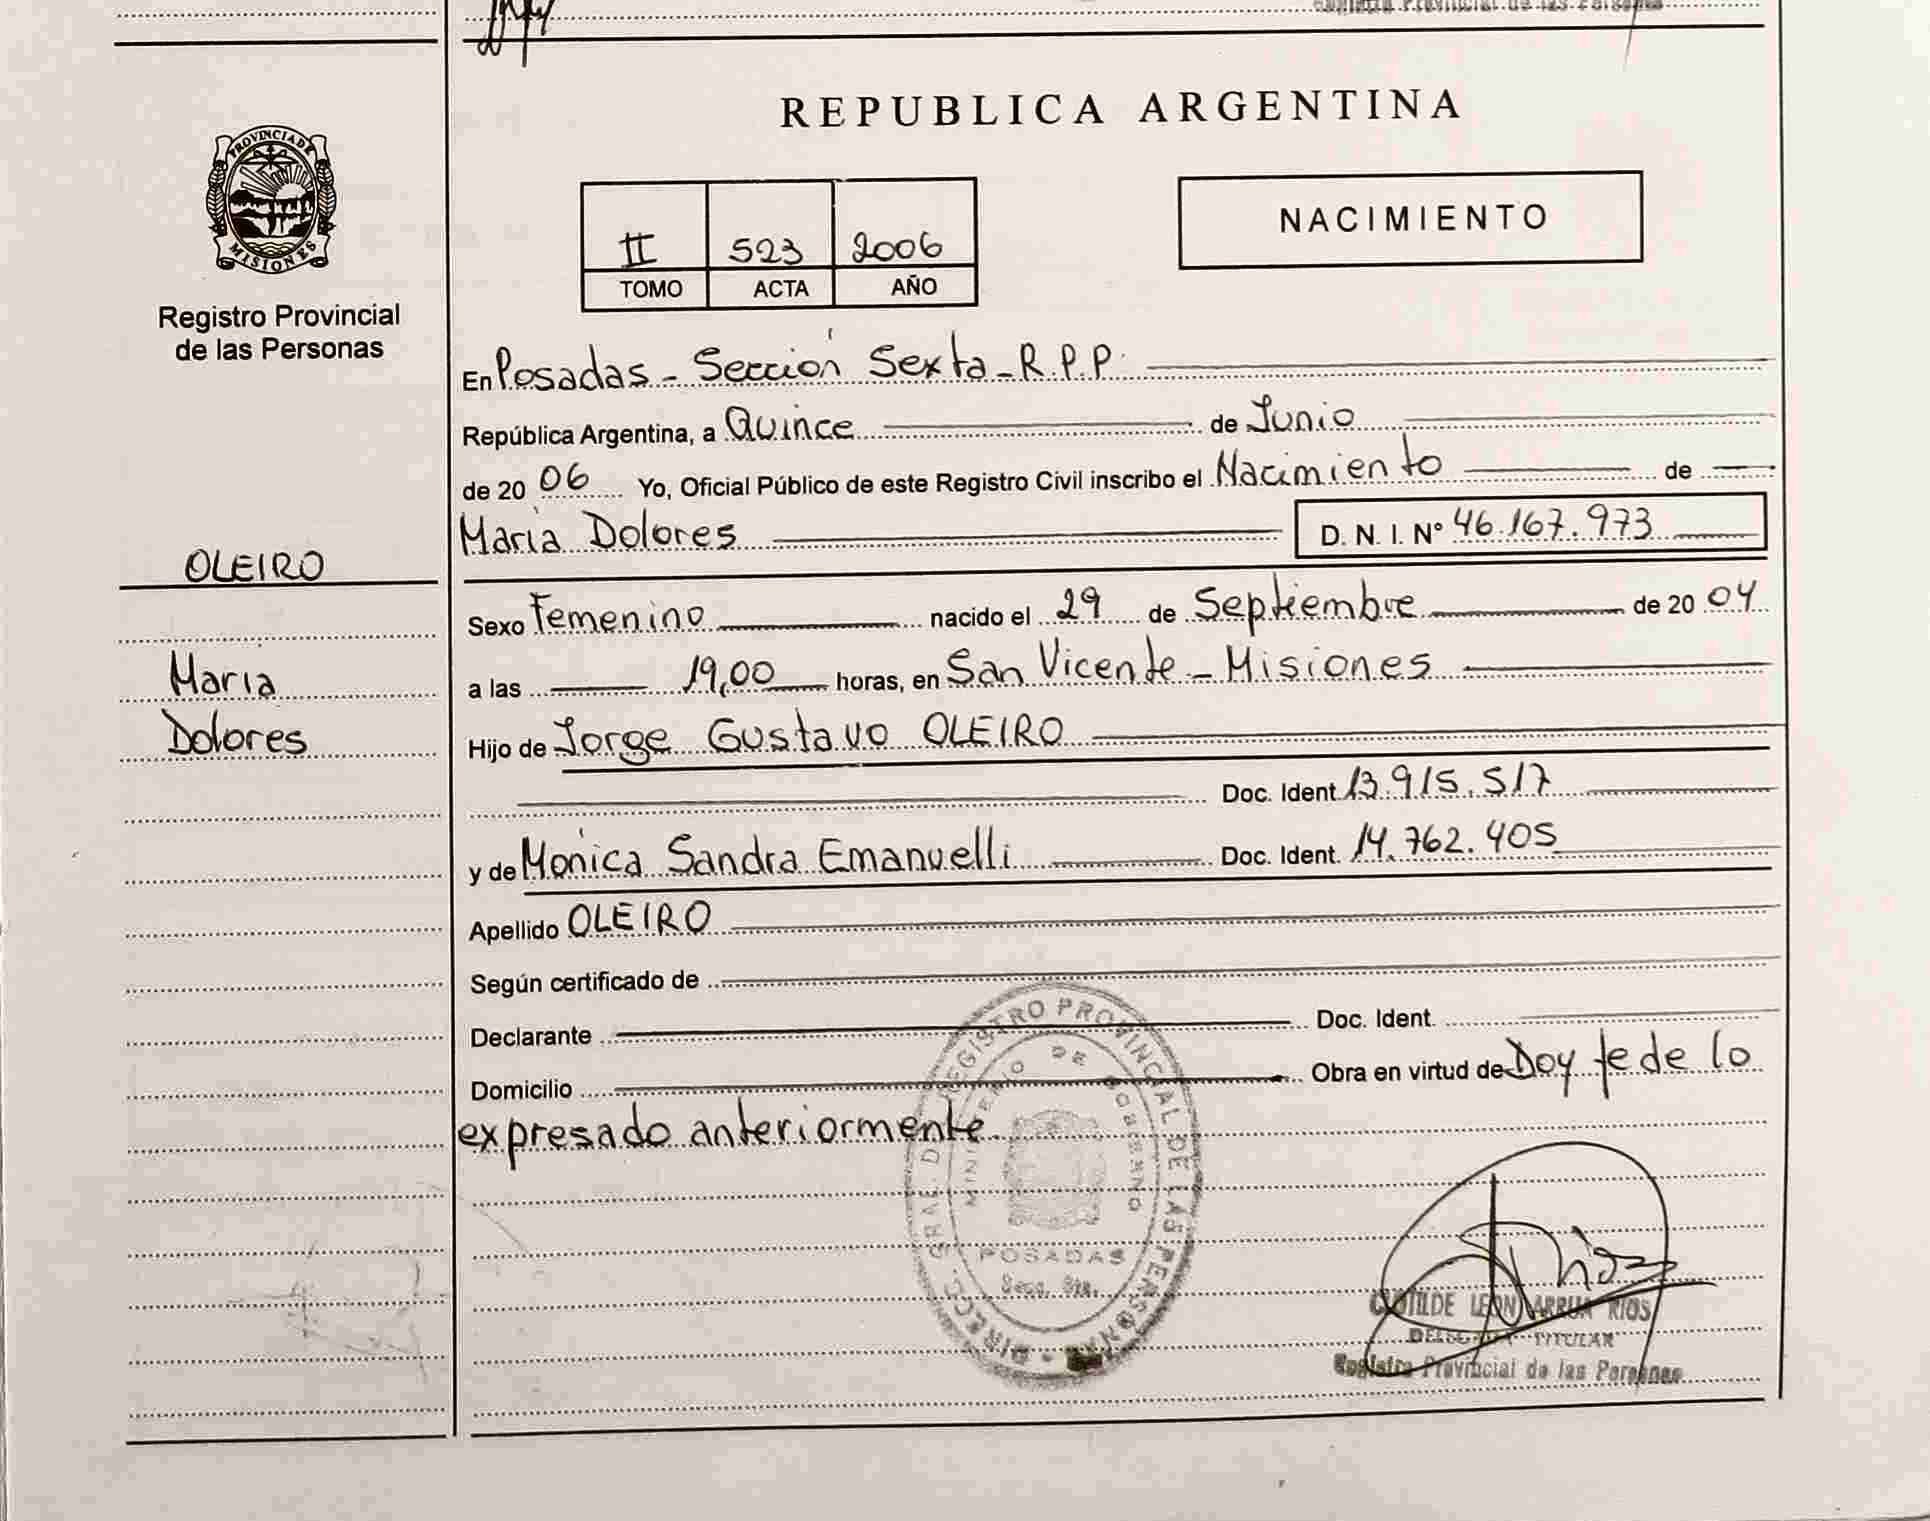 Registro Provincial de las Personas
REPUBLICA ARGENTINA
PROVINCIA DE
MISIONES
Registro Provincial
de las Personas
II 523 2006
TOMO ACTA AÑO
NACIMIENTO
En Posadas - Sección Sexta - R.P.P.
República Argentina, a Quince de Junio
de 20 06 Yo, Oficial Público de este Registro Civil inscribo el Nacimiento de
María Dolores D. N. I. Nº 46.167.973
OLEIRO
María
Dolores
Sexo Femenino nacido el 29 de Septiembre de 20 04
a las 19,00 horas, en San Vicente - Misiones
Hijo de Jorge Gustavo OLEIRO
Doc. Ident. 13.915.517
y de Mónica Sandra Emanuelli Doc. Ident. 14.762.405
Apellido OLEIRO
Según certificado de
Declarante Doc. Ident.
Domicilio Obra en virtud de Doy fe de lo
expresado anteriormente.
DIRECC. GRAL. DE REGISTRO PROVINCIAL DE LAS PERSONAS
MINISTERIO DE GOBIERNO
POSADAS
Secc. 6ta.
CLOTILDE LEON ARRUA RIOS
DELEGADA TITULAR
Registro Provincial de las Personas